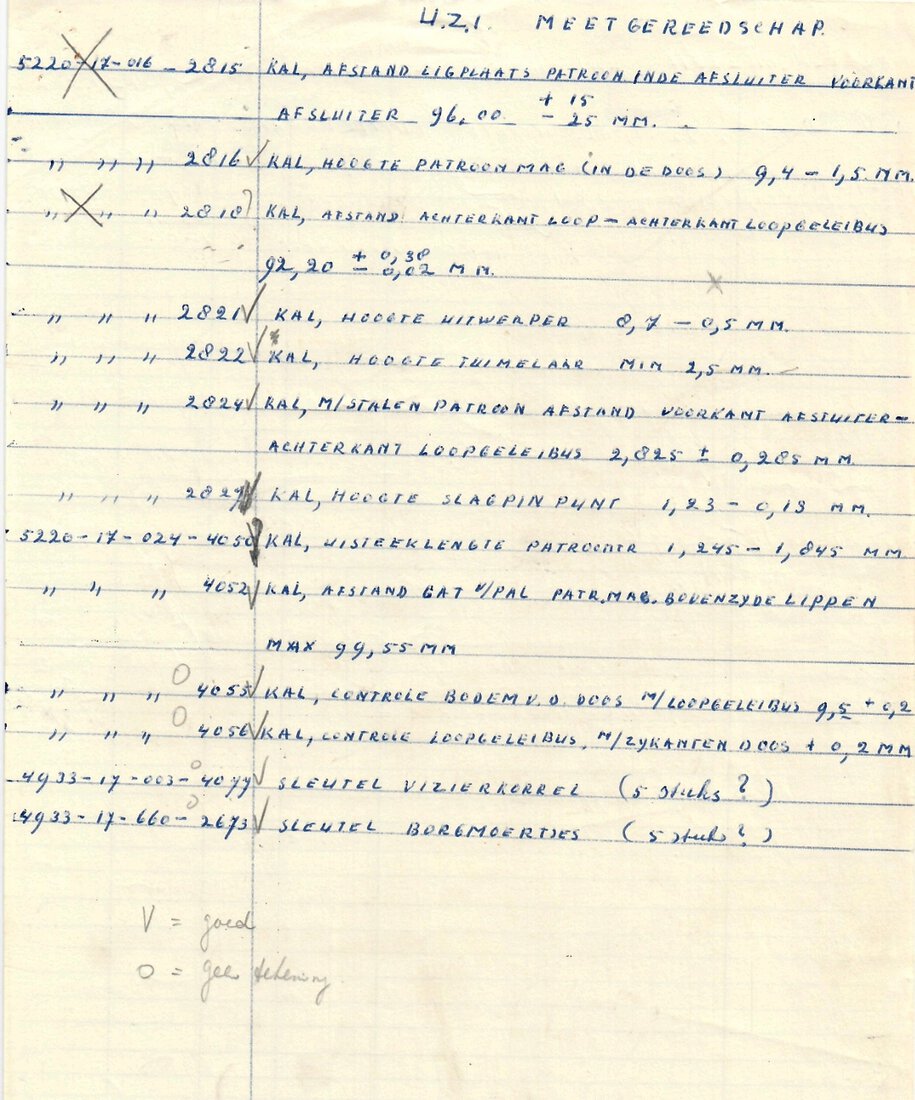 U.Z.I. MEETGEREEDSCHAP.
5220-17-016-2815 KAL, AFSTAND LIGPLAATS PATROON INDE AFSLUITER VOORKANT
AFSLUITER 96,00 + 15 - 25 MM.
,, ,, ,, 2816 √ KAL, HOOGTE PATROON MAG (IN DE DOOS) 9,4 - 1,5 MM.
,, ,, ,, 2818 ? KAL, AFSTAND ACHTERKANT LOOP - ACHTERKANT LOOPGELEIBUS
92,20 + 0,38 - 0,02 MM.
,, ,, ,, 2821 √ KAL, HOOGTE UITWERPER 8,7 - 0,5 MM.
,, ,, ,, 2822 √ KAL, HOOGTE TUIMELAAR MIN 2,5 MM.
,, ,, ,, 2824 √ KAL, M/STALEN PATROON AFSTAND VOORKANT AFSLUITER-
ACHTERKANT LOOPGELEIBUS 2,825 ± 0,285 MM
,, ,, ,, 2829 √ KAL, HOOGTE SLAGPIN PUNT 1,23 - 0,13 MM.
5220-17-024-4050 √ KAL, UISTEEKLENGTE 1,245 - 1,845 MM
,, ,, ,, 4052 √ KAL, AFSTAND GAT V/PAL PATR.MAG. BOVENZYDE LIPPEN
MAX 99,55 MM
,, ,, ,, O 4055 √ KAL, CONTROLE BODEM V.D. DOOS M/LOOPGELEIBUS 9,5 + 0,2
,, ,, ,, O 4056 √ KAL, CONTROLE LOOPGELEIBUS, M/ZYKANTEN DOOS + 0,2 MM
4933-17-003-4077 O √ SLEUTEL VIZIERKORREL (5 stuks ?)
4933-17-660-2673 O √ SLEUTEL BORGMOERTJES (5 stuks ?)
V = goed
O = geen tekening